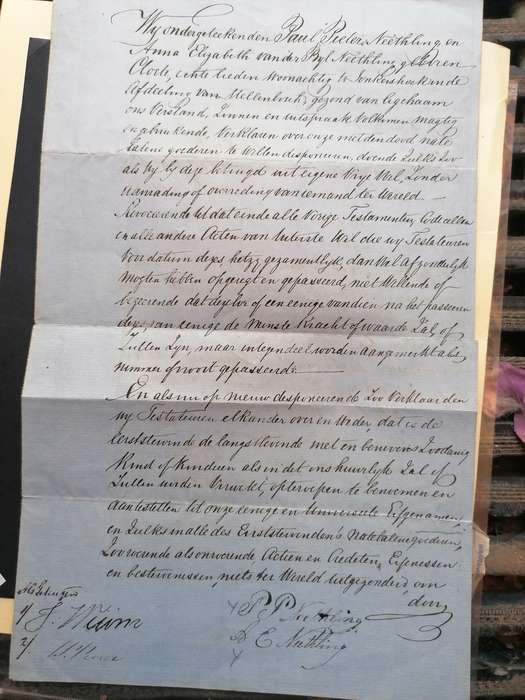 Wij ondergeteekenden Paul Pieter Neethling en
Anna Elizabeth van der Byl Neethling geboren
Cloete, echte lieden woonachtig te Jonkershoek in de
Afdeeling van Stellenbosch, gezond van lighaam
ons Verstand, Zinnen en uitspraak Volkomen magtig
en gebruikende, Verklaren over onze met den dood nate
Latene goederen te Willen disponeren, doende Zulks Zoo
als wy by deze betuigd uit eigene Vrye Wil, Zonder
aanrading of overreding van iemand ter Wereld.
Revocerende tot dat einde alle Vorige Testamenten, Codicillen
en alle andere Acten van Uiterste Wil die wy Testateuren
voor datum dezes, hetzy gezamentlyk, dan Wel afzonderlyk
mogten hebben opgeregt en gepasseerd, niet Willende of
begeerende dat dezelve of een eenige van dien na het passeren
dezes, van eenige de Minste Kracht of waarde Zal, of
Zullen Zyn, maar integendeel worden aangemerkt als
nimmer of nooit gepasseerd.
En als nu op nieuw disponerende Zoo Verklaarden
wy Testateuren elkander over en Weder, dat is de
Eerststervende de langstlevende met en benevens Zoodanig
Kind of Kinderen als in dit ons huwelyk Zal of
Zullen worden Verwekt, opteroepen te benoemen en
aantestellen tot onze eenige en Universeele Erfgenamen,
en Zulks in alle des Eerststervenden's Natelatene goederen,
Zoo roerende als onroerende Actien en Crediten, Erfenissen
en besterfenissen, niets ter Wereld uitgezonderd om
door
Als Getuigen
1/ J. Weim
2/
P P Neethling
E Neethling